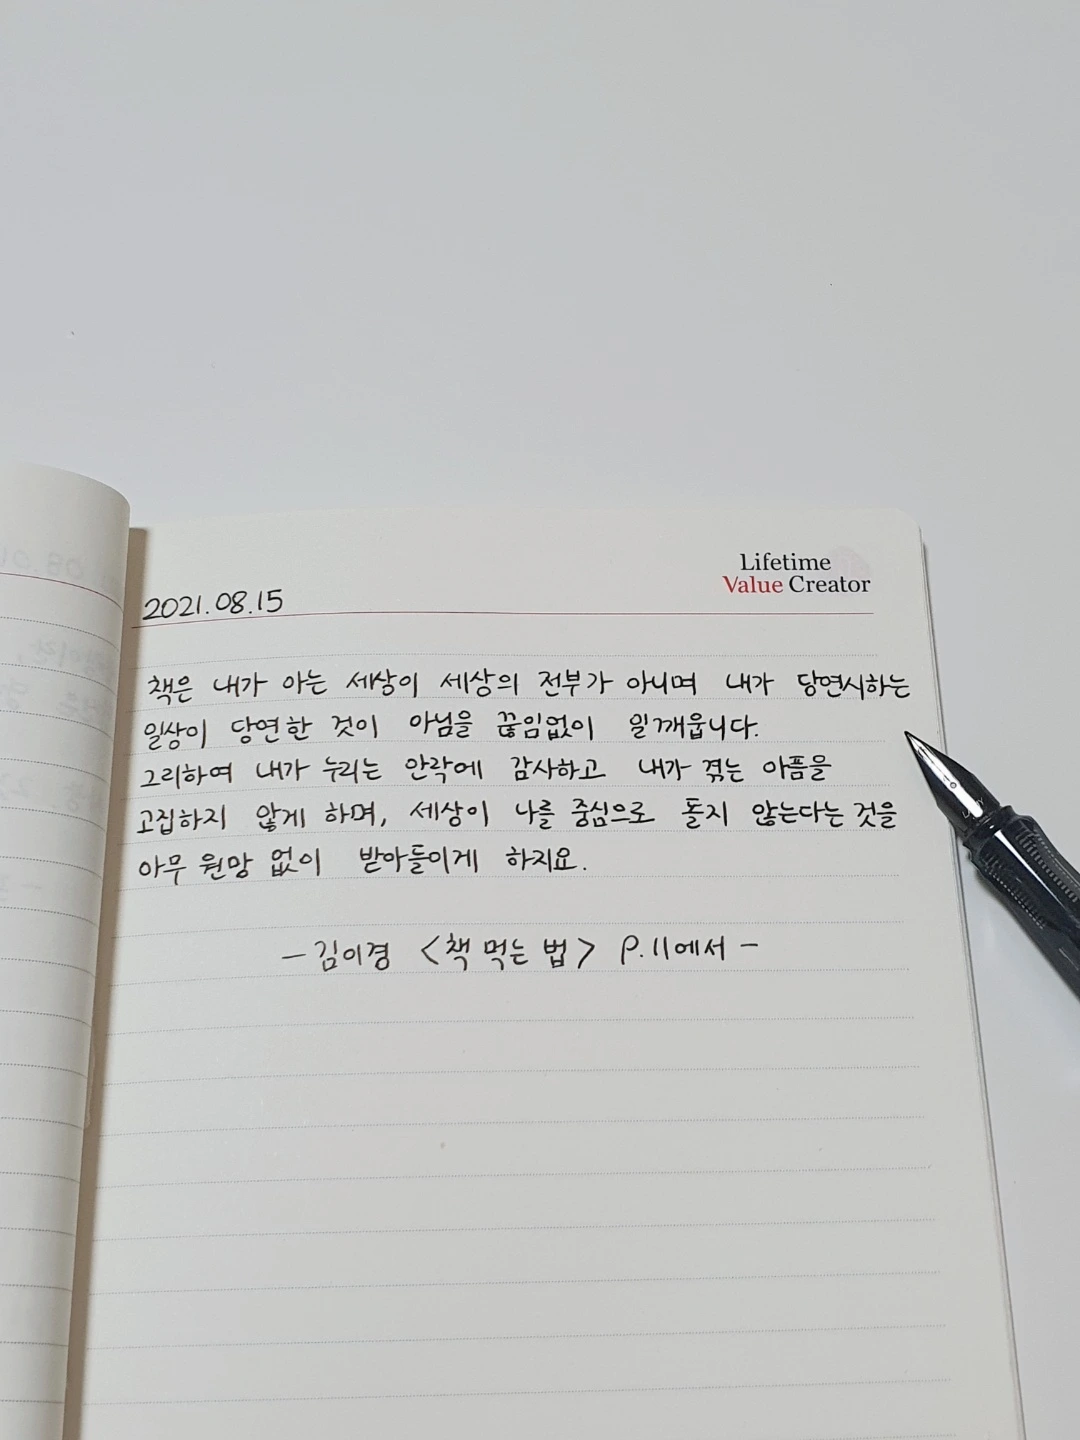 Lifetime
Value Creator
2021.08.15
책은 내가 아는 세상이 세상의 전부가 아니며 내가 당연시하는
일상이 당연한 것이 아님을 끊임없이 일깨웁니다.
그리하여 내가 누리는 안락에 감사하고 내가 겪는 아픔을
고집하지 않게 하며, 세상이 나를 중심으로 돌지 않는다는 것을
아무 원망 없이 받아들이게 하지요.
- 김이경 <책 먹는 법> P.11에서 -